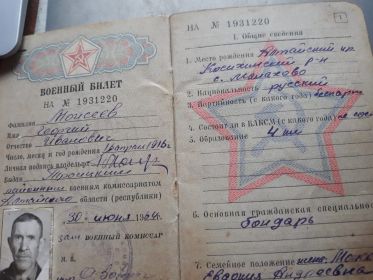 ВОЕННЫЙ БИЛЕТ
НА № 1931220
Фамилия Моисеев
Имя Георгий
Отчество Иванович
Число, месяц и год рождения
Личная подпись владельца
Выдан Троицким
районным военным комиссариатом
Алтайского
области (республики)
30 июня
ВОЕННЫЙ КОМИССАР
М. П.
НА № 1931220
1
I. Общие сведения
1. Место рождения Алтайский кр.
Косихинский р-н
с. Малахово
2. Национальность русский
3. Партийность (с какого года) беспарт.
4. Состоял ли в ВЛКСМ (с какого года) не сос
5. Образование 4 кл
6. Основная гражданская специальнос
бондарь
7. Семейное положение жена:
Евдокия Андреевна